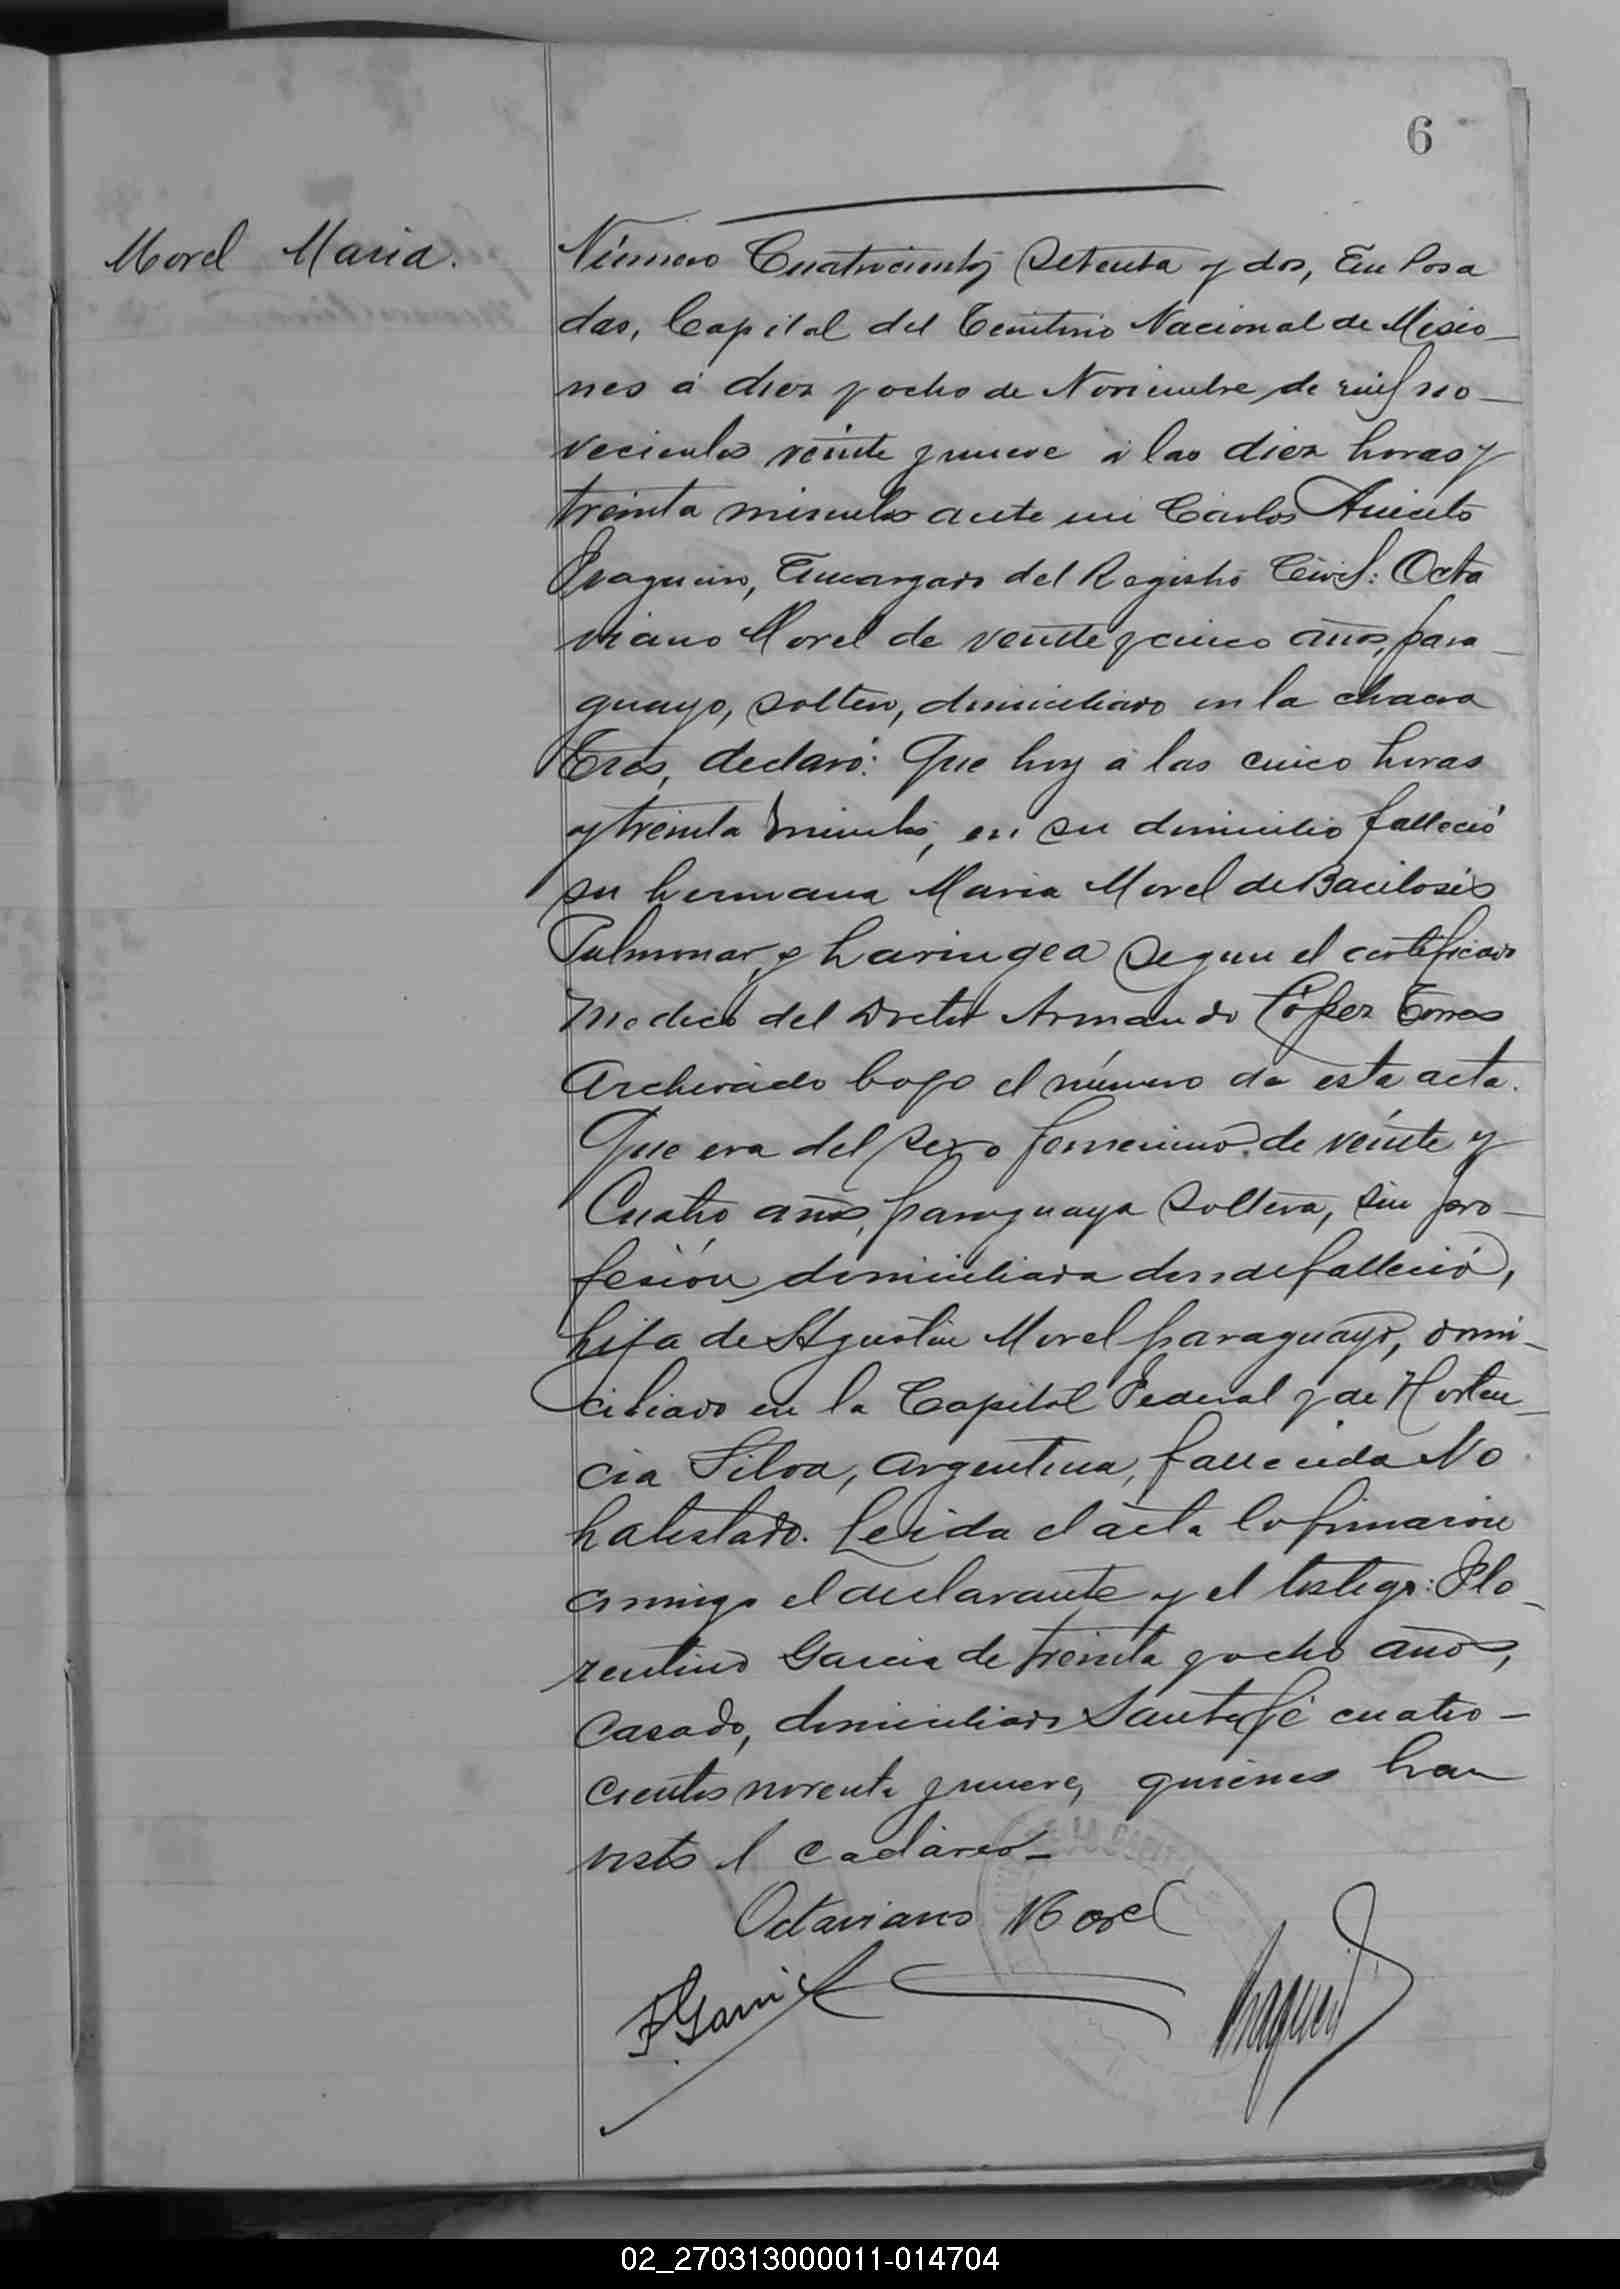 6
Morel Maria.
Número Cuatrocientos Setenta y dos, En Posa
das, Capital del Territorio Nacional de Misio-
nes á diez y ocho de Noviembre de mil no-
vecientos veinte y nueve á las diez horas y
treinta minutos ante mi Carlos Aniceto
Encargado del Registro Civil: Octa
viano Morel de veinte y cinco años, para-
guayo, soltero, domiciliado en la chacra
Tres, declaró: Que hoy á las cinco horas
y treinta minutos, en su domicilio falleció
su hermana Maria Morel de Bacilosis
Pulmonar y Laringea segun el certificado
Medico del Doctor Armando López Torres
Archivado bajo el número de esta acta.
Que era del sexo femenino de veinte y
Cuatro años, paraguaya soltera, sin pro-
fesión domiciliada donde falleció,
hija de Agustin Morel paraguayo, domi-
ciliado en la Capital Federal y de Horten-
cia Silva, argentina, fallecida No
ha testado. Leida el acta la firmaron
conmigo el declarante y el testigo: Flo-
rentino Garcia de treinta y ocho años,
casado, domiciliado Santa fé cuatro-
cientos noventa y nueve, quienes han
visto el cadáver-
Octaviano Morel
F Garcia
02_270313000011-014704